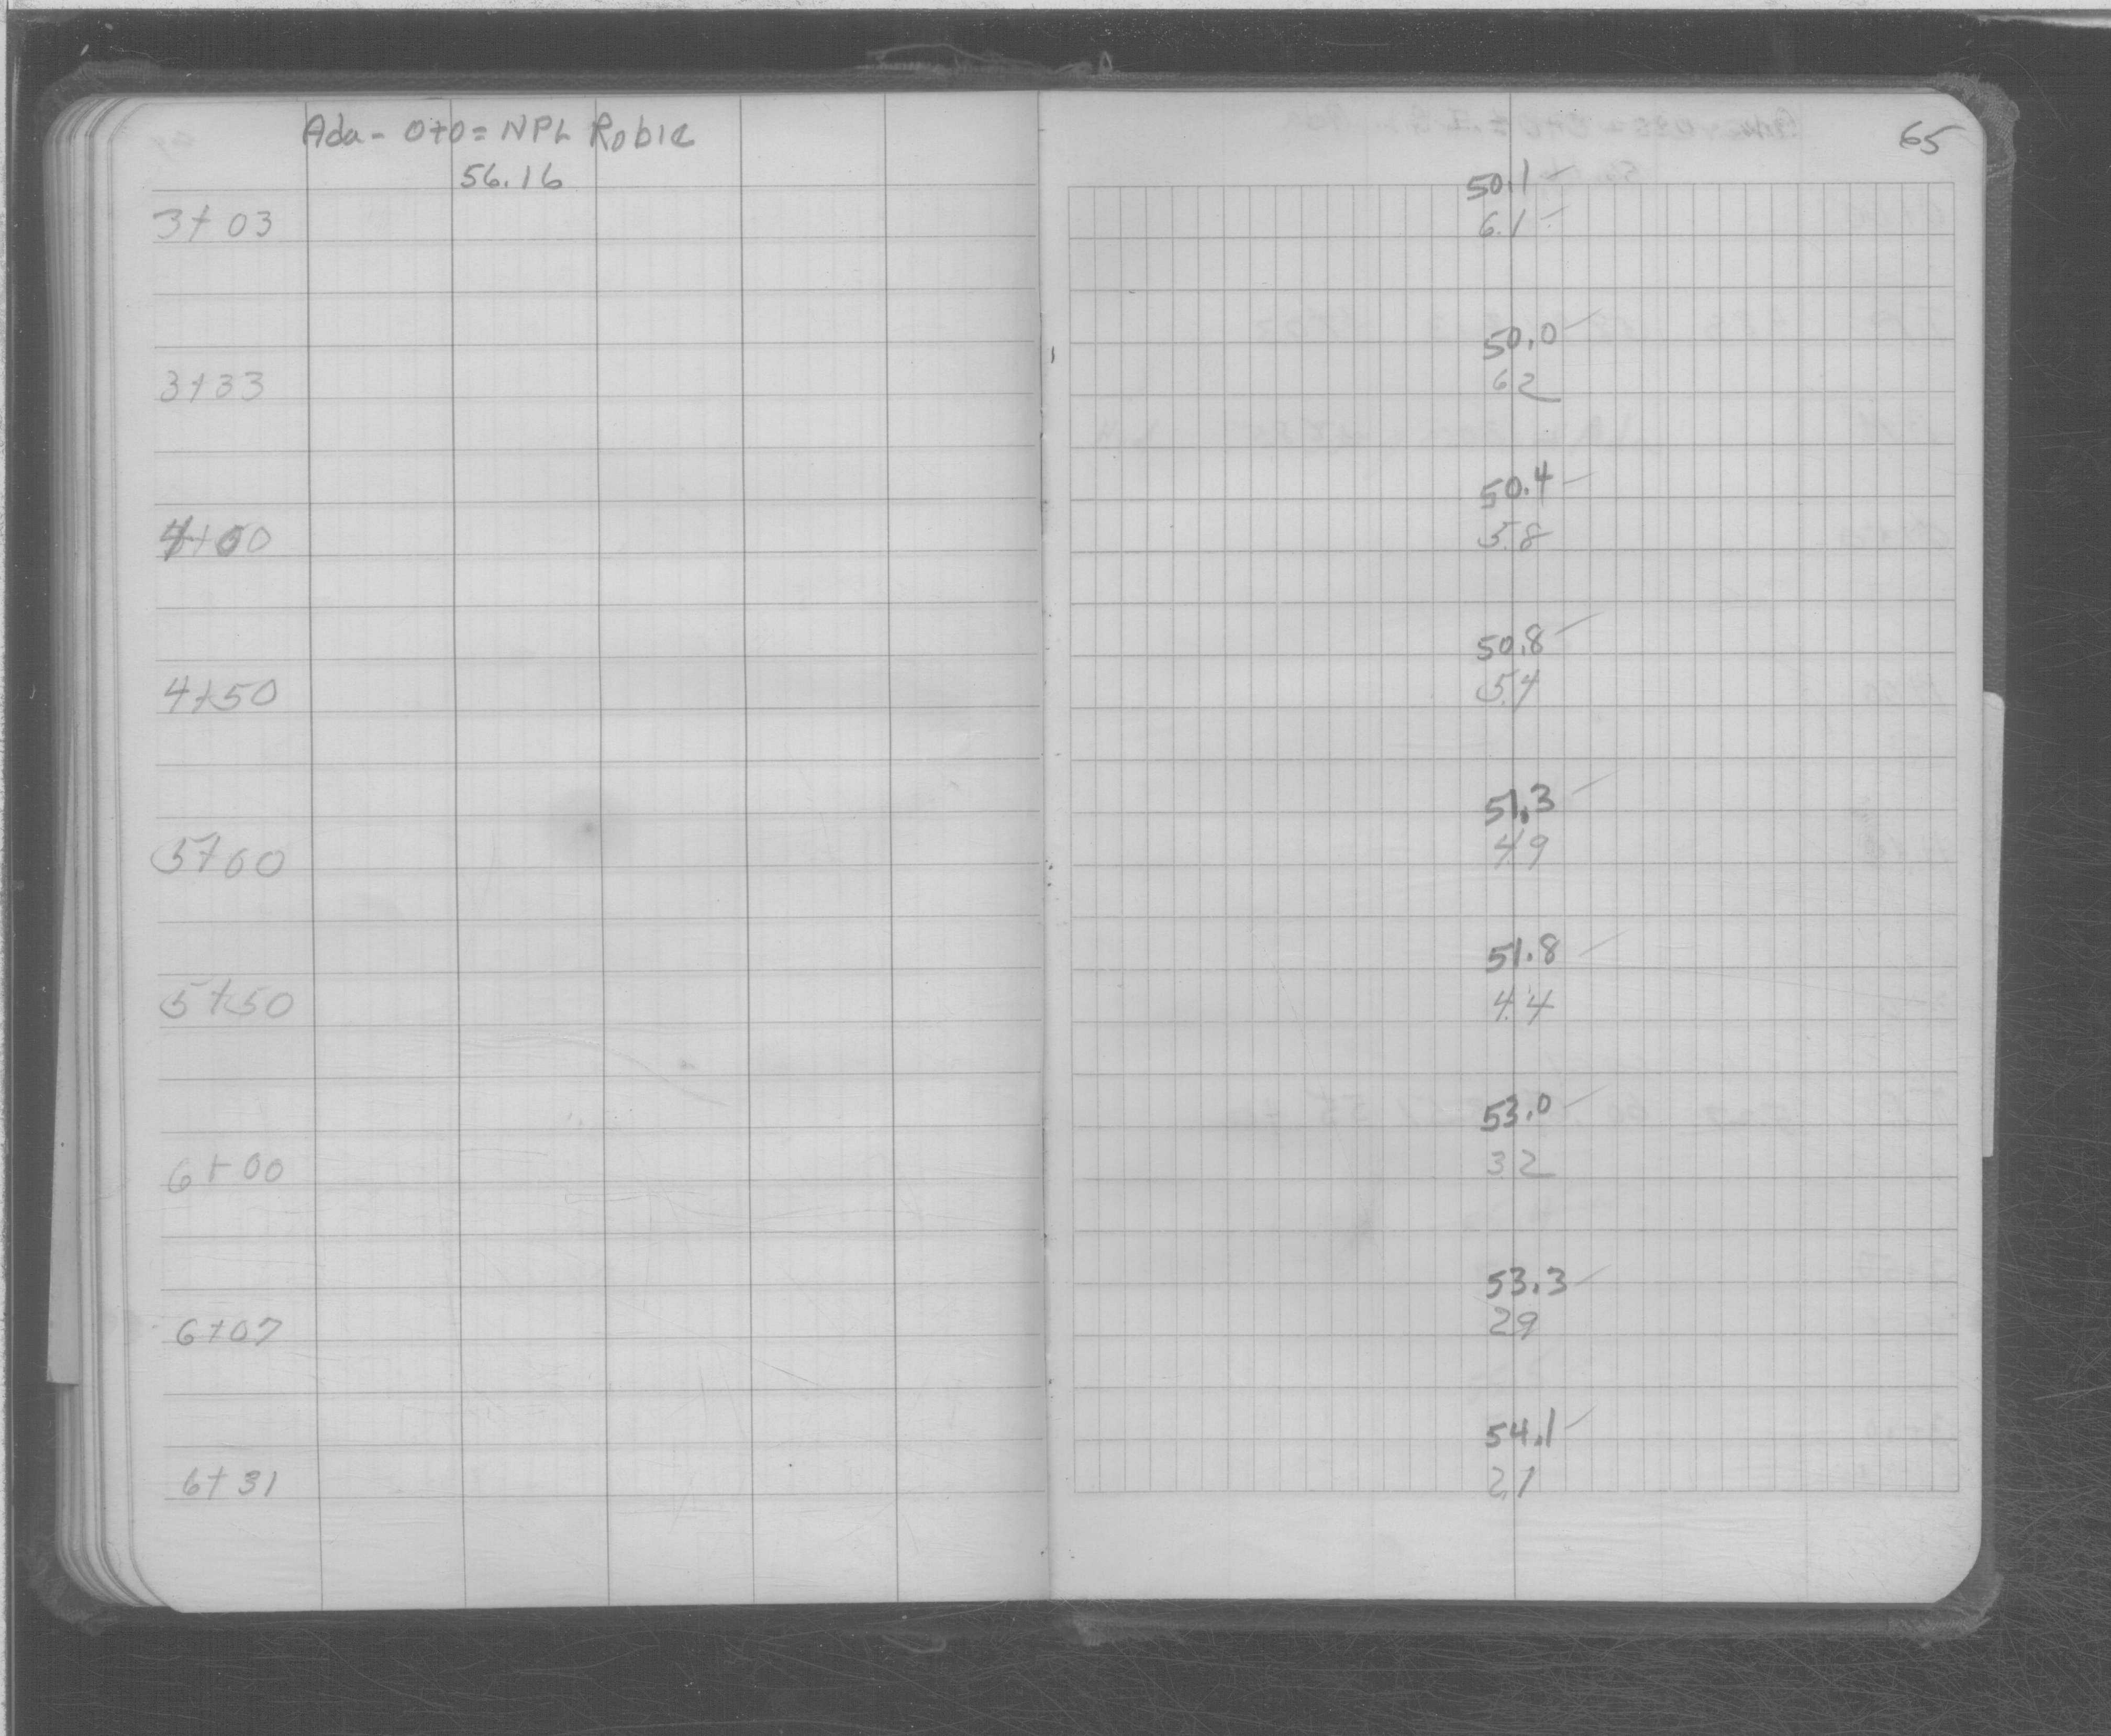 Ada - 0+0 = NPL Robie
56.16
65
50.1
3+03 6.1
50.0
3+33 62
50.4
4+00 5.8
50.8
4+50 5.4
51.3
5+00 49
51.8
5+50 4.4
53.0
6+00 32
53.3
6+07 29
54.1
6+31 2.1